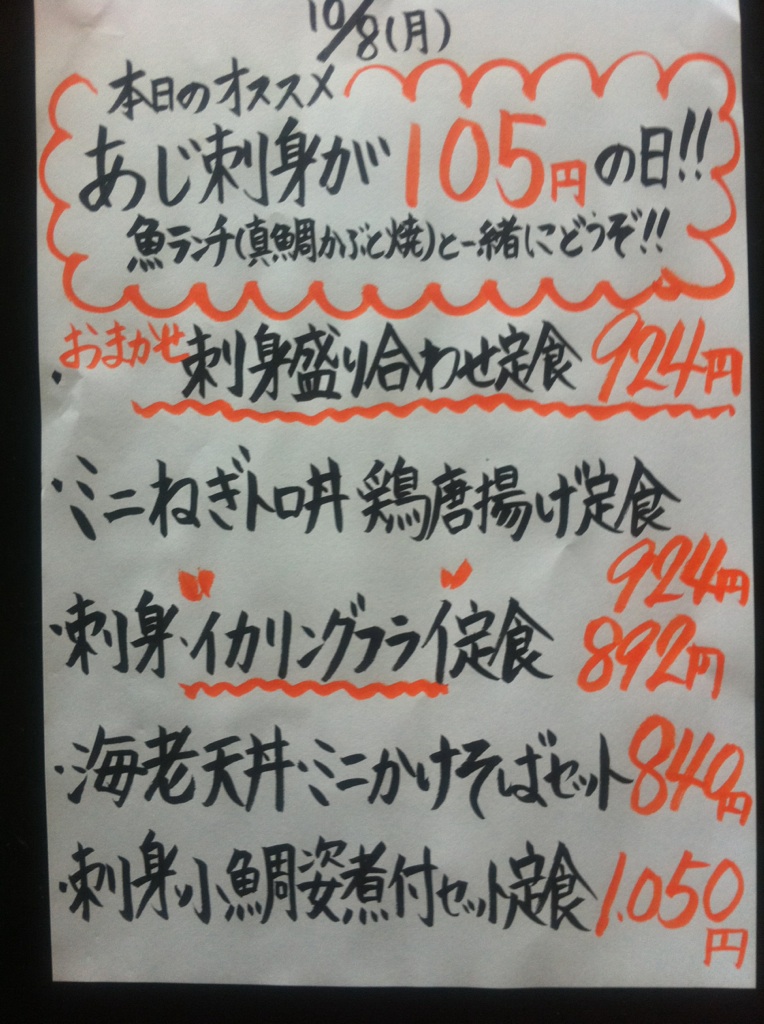 10/8(月)
本日のオススメ
あじ刺身が105円の日!!
魚ランチ(真鯛かぶと焼)と一緒にどうぞ!!
・おまかせ刺身盛り合わせ定食 924円
・ミニねぎトロ丼 鶏唐揚げ定食
924円
・刺身・イカリングフライ定食 892円
・海老天丼・ミニかけそばセット 840円
・刺身・小鯛姿煮付セット定食 1.050
円